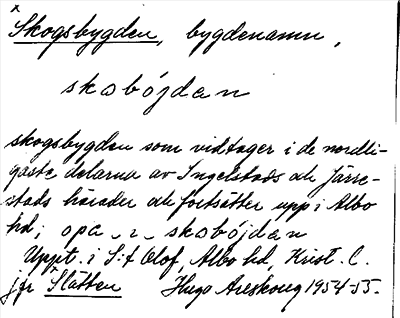 x
Skogsbygden, bygdenamn,
skobójdan
skogsbygden som vidtager i de nordli-
gaste delarna av Ingelstads och Järre-
stads härader och fortsätter upp i Albo
hd; opa - i - skobójdan
Uppt. i S:t Olof, Albo hd, Krist. l.
jfr Slätten Hugo Areskoug 1954-55.